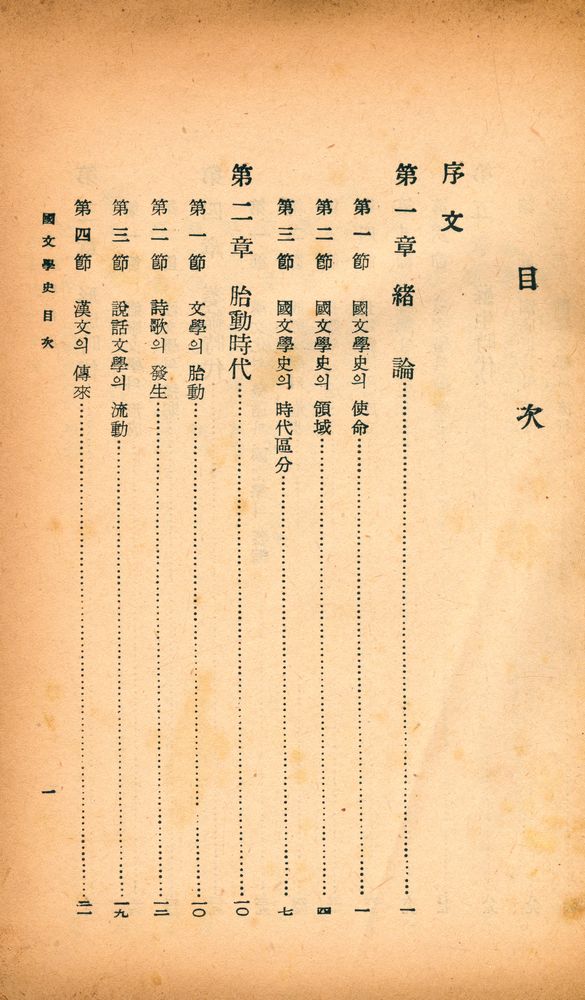 目次
序文
第一章 緖論 一
第一節 國文學史의 使命 一
第二節 國文學史의 領域 四
第三節 國文學史의 時代區分 七
第二章 胎動時代 一〇
第一節 文學의 胎動 一〇
第二節 詩歌의 發生 一二
第三節 說話文學의 流動 一九
第四節 漢文의 傳來 二一
國文學史 目次 一